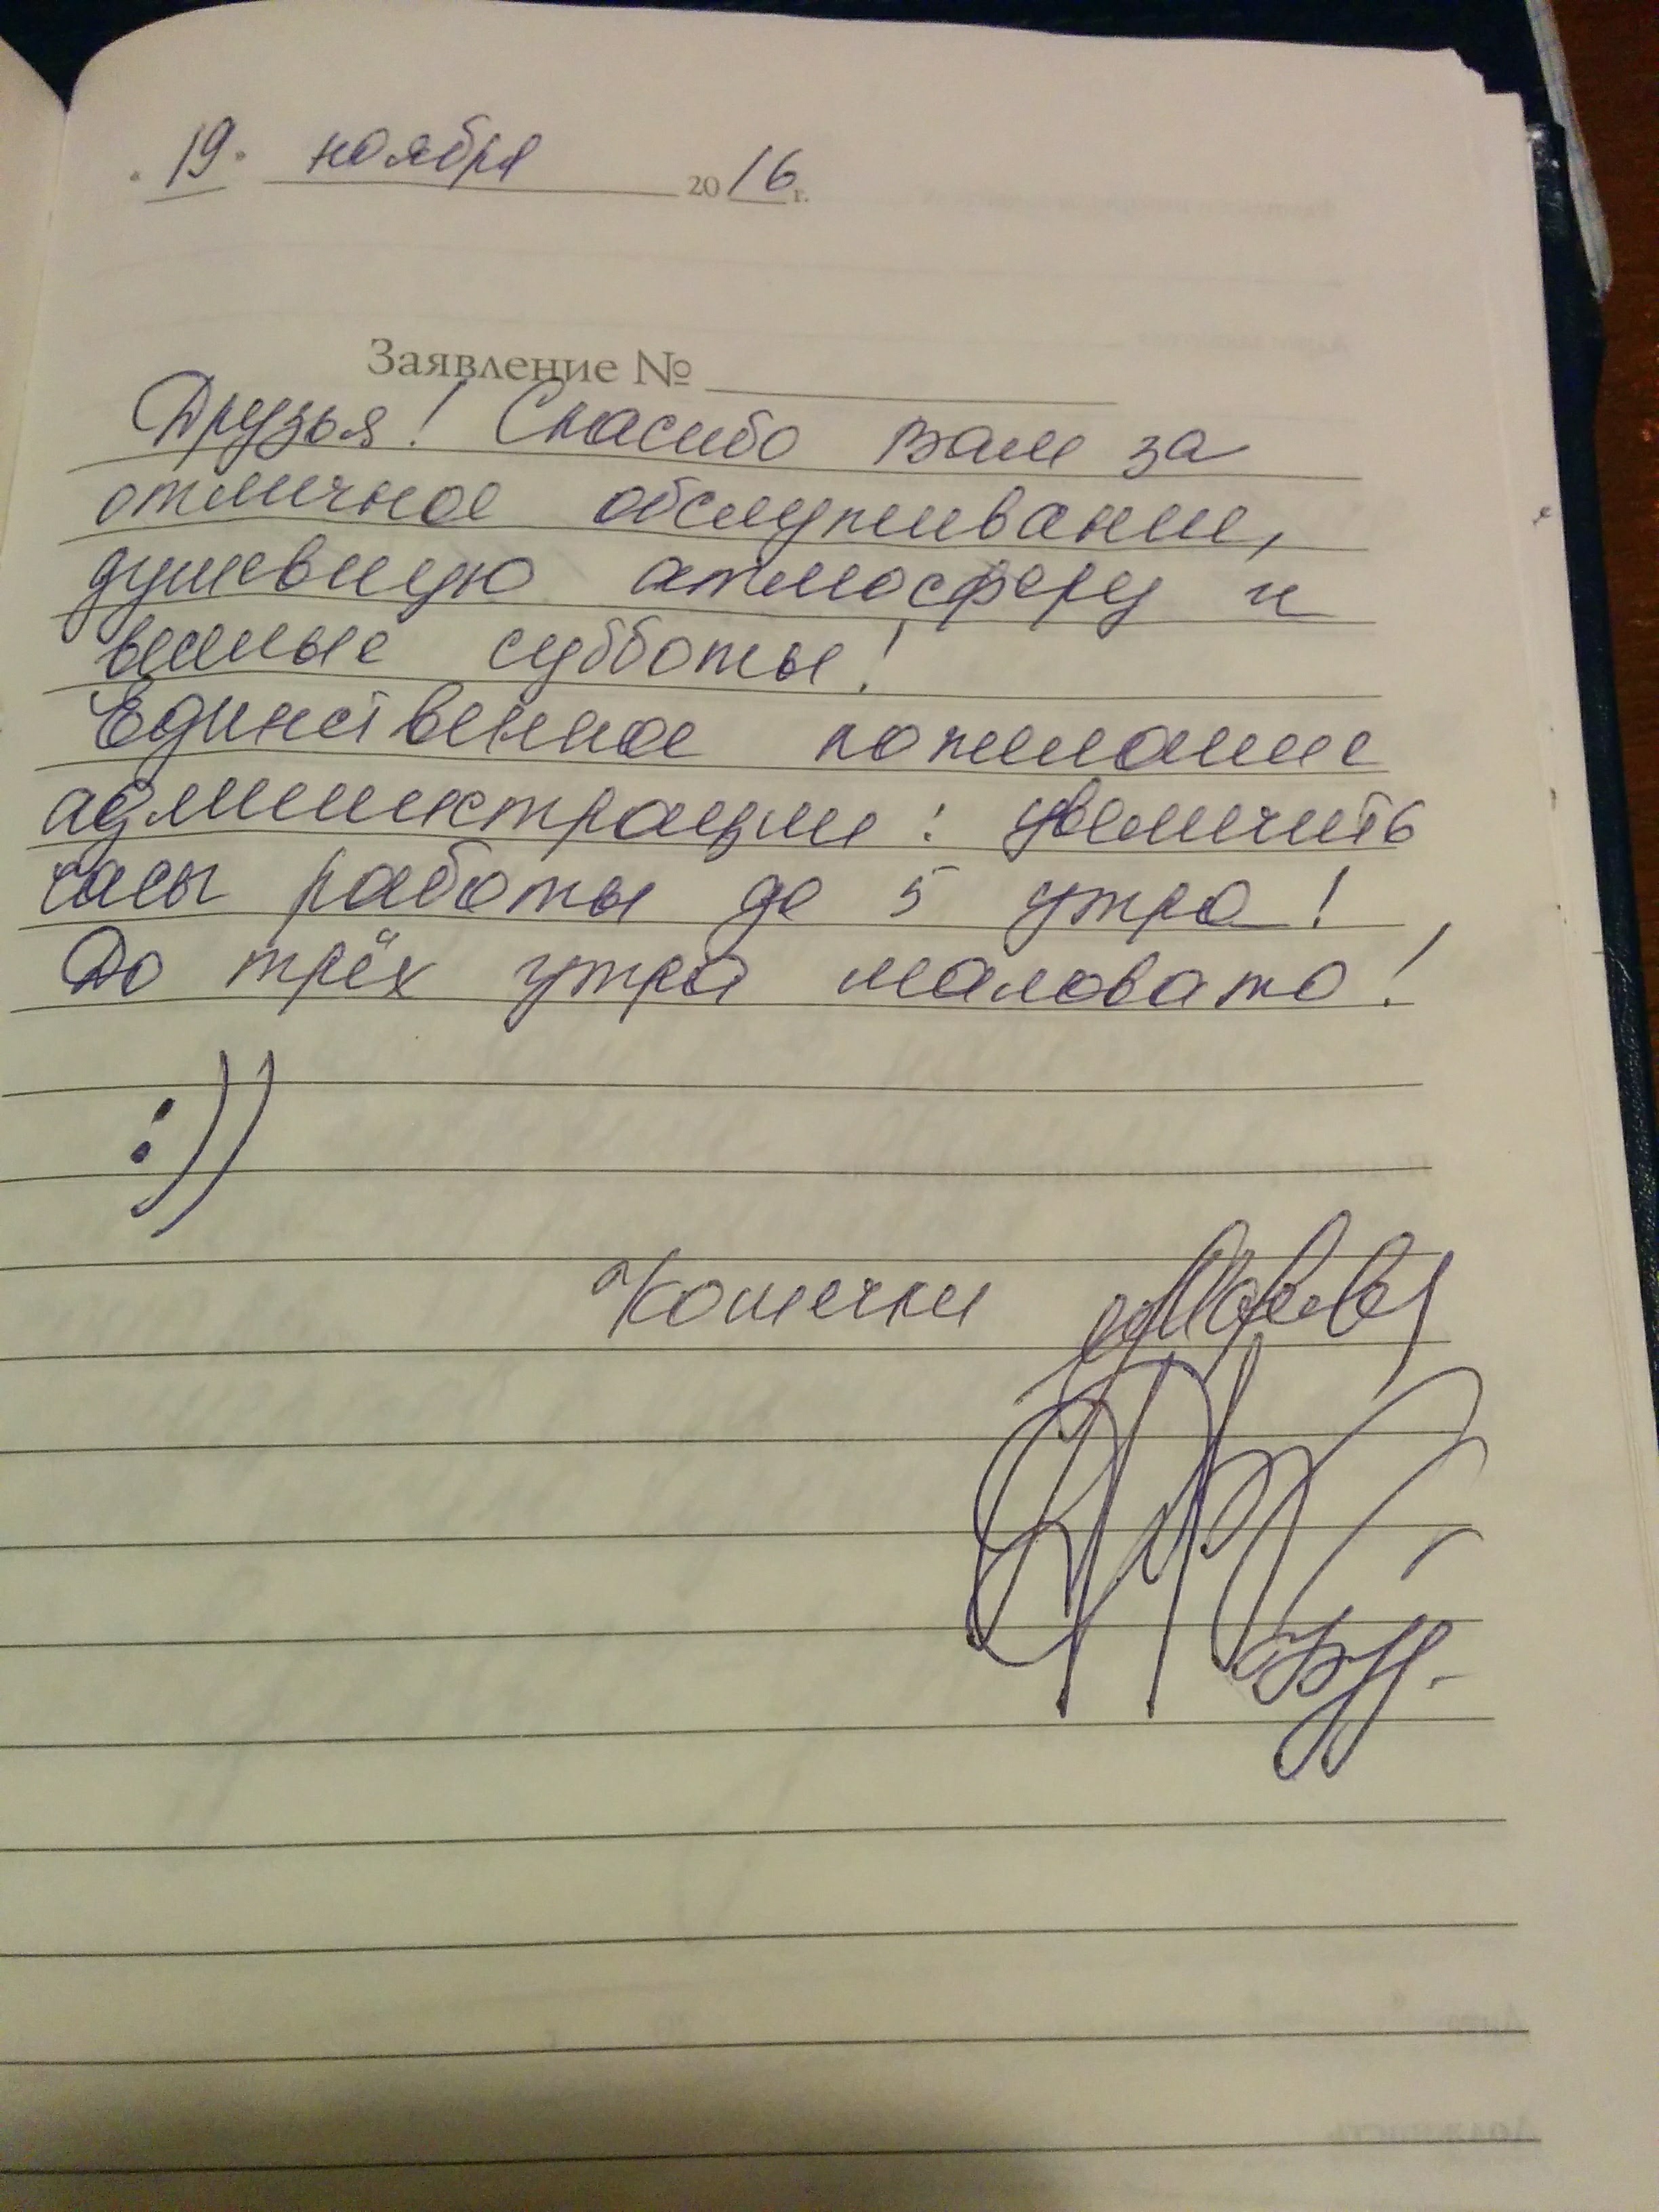 "19" ноября 2016 г.
Заявление №
Друзья! Спасибо вам за
отличное обслуживание,
душевную атмосферу и
вечные субботы!
Единственное пожелание
администрации: увеличить
часы работы до 5 утра!
До трёх утра маловато!
:))
Кошечки